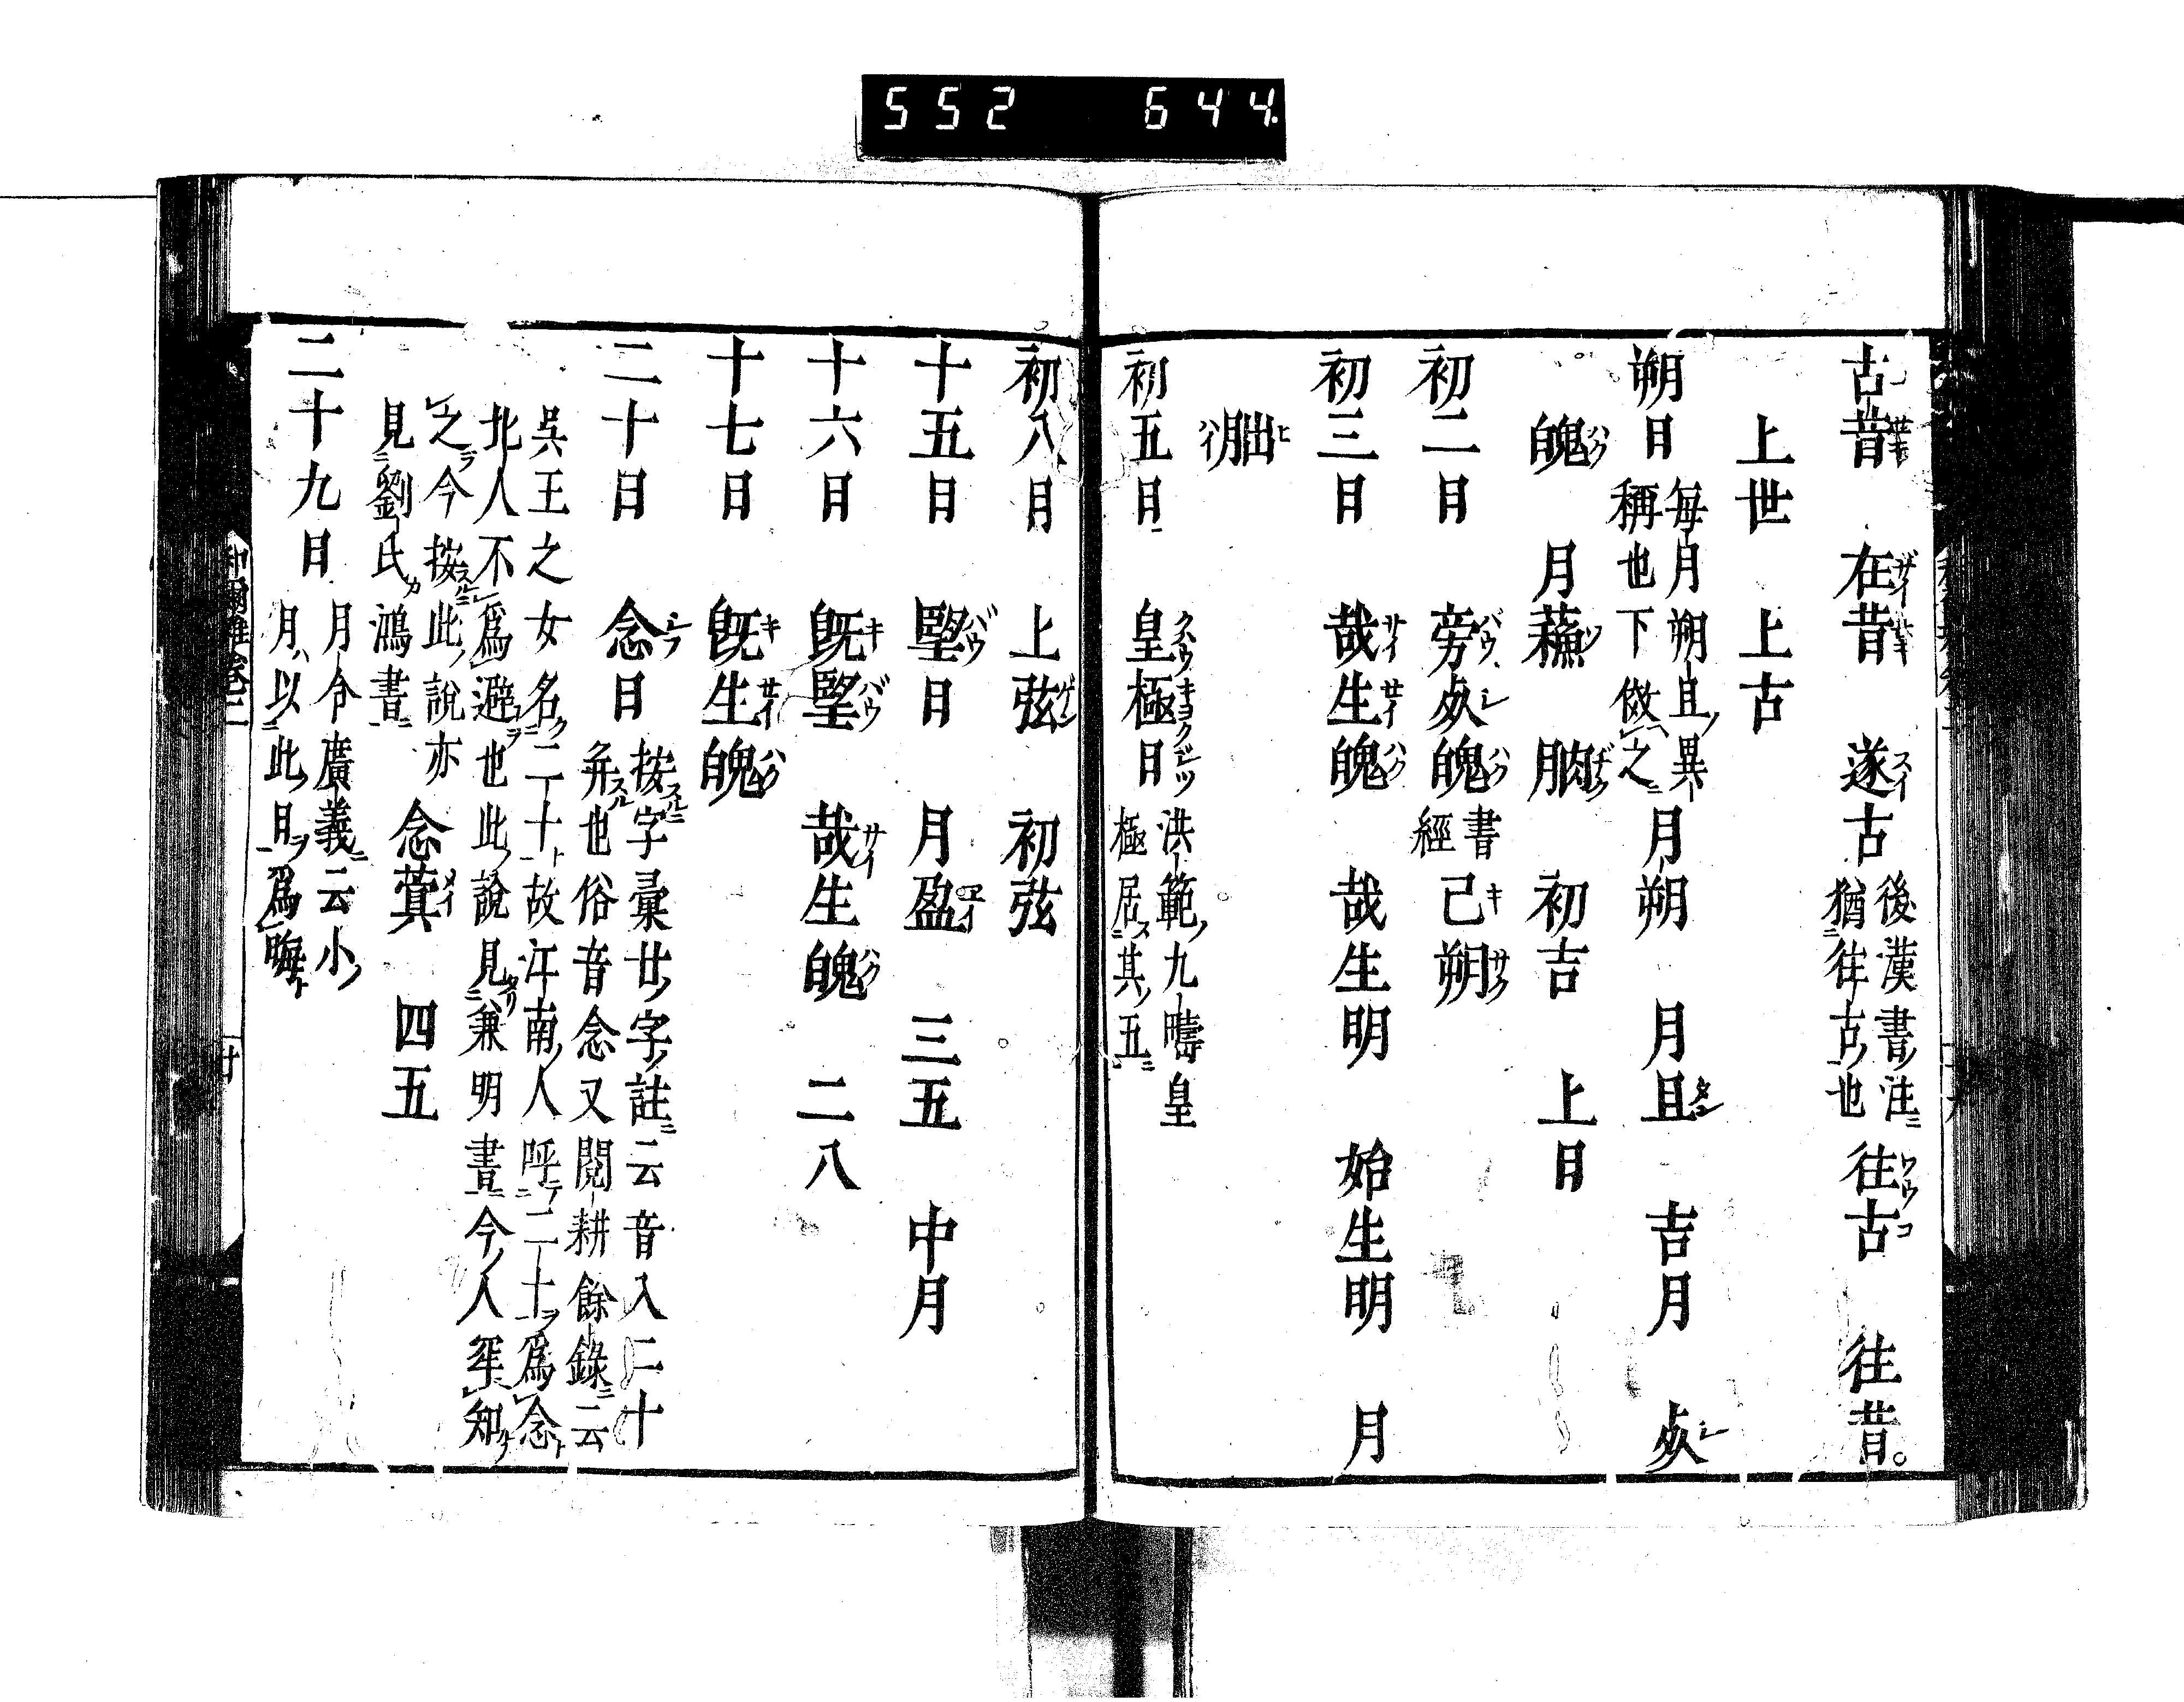 552 644.
古昔 在昔 遂古 後漢書注 猶往古也 往古 往昔。
上世 上古
朔日 每月朔旦異 稱也下倣之 月朔 月旦 吉月 𣦸
魄 月蘓 朒 初吉 上日
初二日 旁𣦸魄 書經 己朔
初三日 哉生魄 哉生明 始生明 月
朏
初五日 皇極日 洪範九疇皇 極居其五
初八日 上弦 初弦
十五日 望日 月盈 三五 中月
十六日 既望 哉生魄 二八
十七日 既生魄
二十日 念日 按字彙廿字註云音入二十
弁也俗音念又閱耕餘錄云
吳王之女名二十故江南人呼二十爲念
北人不爲避也此說見兼明書今人罕知
之今按此說亦
見劉氏鴻書 念蓂 四五
二十九日 月令廣義云小 月以此日爲晦
和爾雅卷二 廿